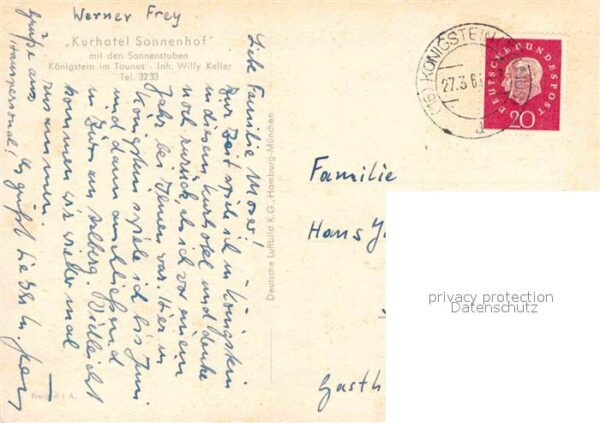 Werner Frey
„Kurhotel Sonnenhof"
mit den Sonnenstuben
Königstein im Taunus - Inh. Willy Keller
Tel. 3233
Liebe Familie Moser!
Zur Zeit spiele ich in Königstein
in diesem Kurhotel und denke
noch zurück, als ich vor einem
Jahr bei Ihnen war. Hier in
Königstein spiele ich bis Juni
und dann anschließend
in Zürs am Arlberg. Vielleicht
kommen wir wieder mal
zusammen.
Es grüßt Sie
Frey
Grüße ans
Hauspersonal!
Freig. d. I. A.
Deutsche Luftbild K.G., Hamburg-München
(16) KÖNIGSTEIN
27.3.6
DEUTSCHE BUNDESPOST
20
Familie
Hans J
Gasth
privacy protection
Datenschutz